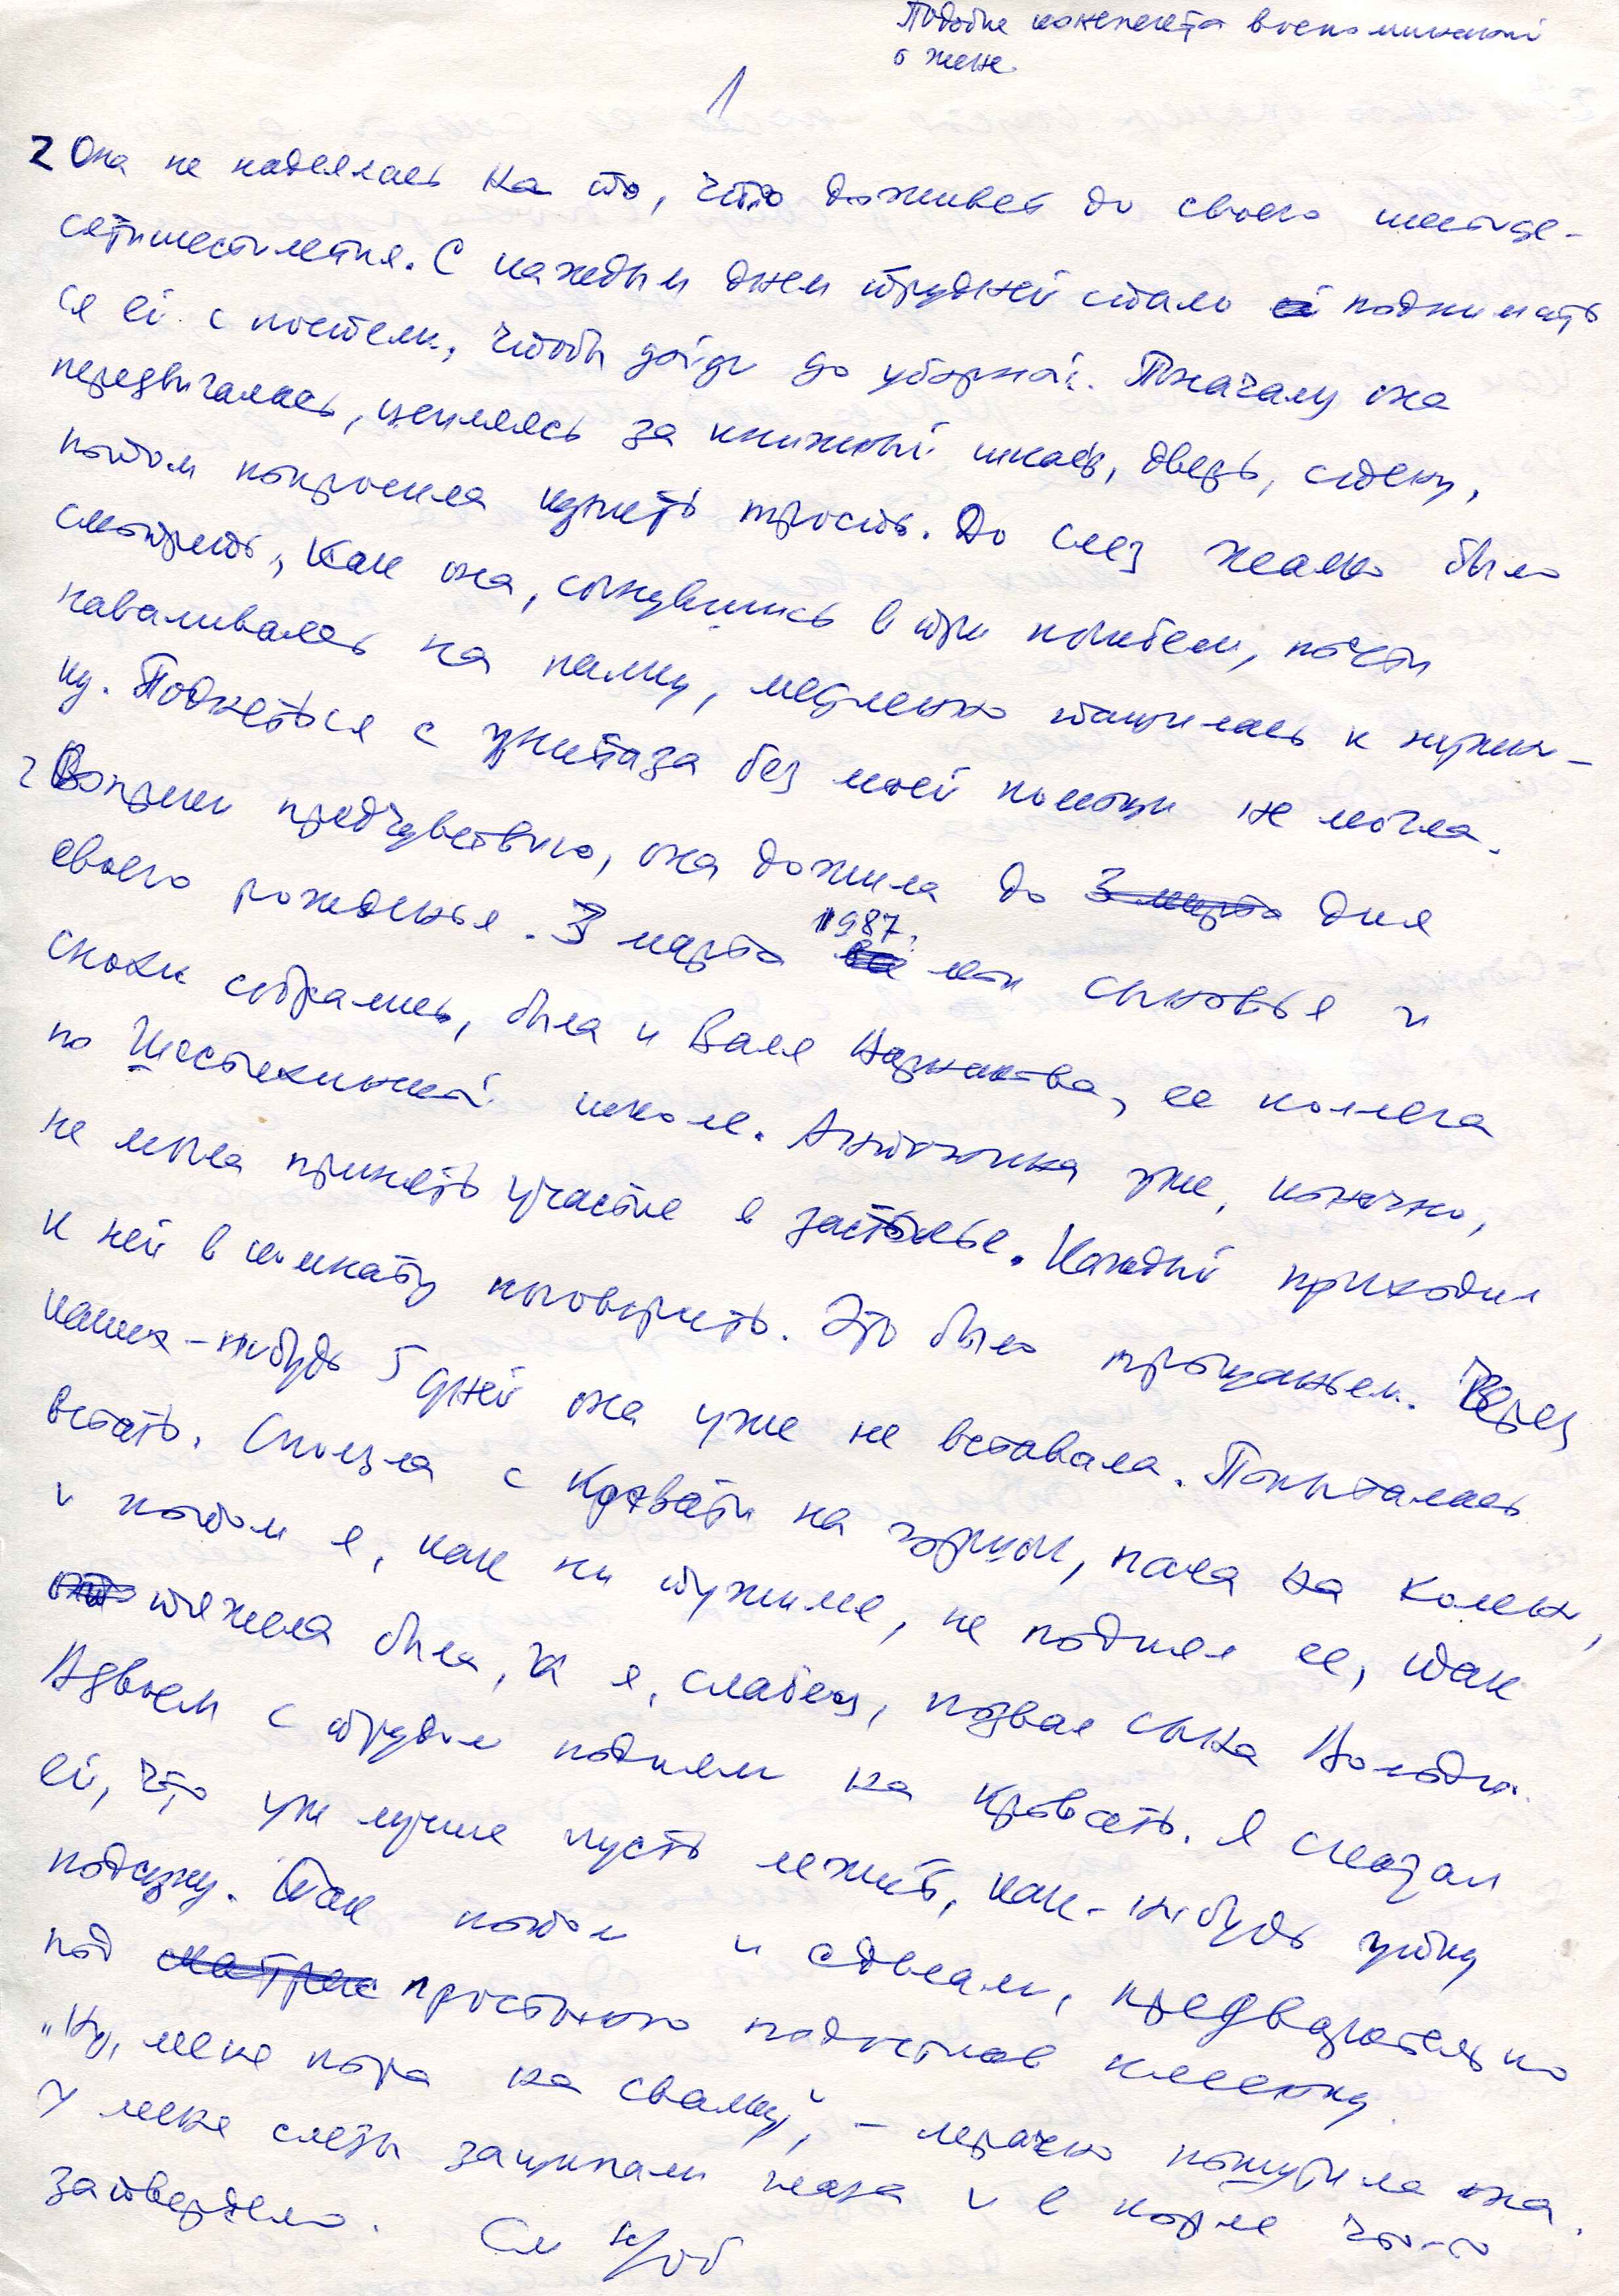 Подобие конспекта воспоминаний
о жене.
1
Z Она не надеялась на то, что доживет до своего шестиде-
сятишестилетия. С каждым днем трудней стало ей поднимать
ся ей с постели, чтобы дойти до уборной. Поначалу она
передвигалась, цепляясь за книжный шкаф, дверь, стену,
потом попросила купить трость. До слез жалко было
смотреть, как она, согнувшись в три погибели, почти
наваливаясь на палку, медленно тащилась к нужни-
ку. Подняться с унитаза без моей помощи не могла.
Z Вопреки предчувствию, она дожила до 3 марта дня
своего рожденья. 3 марта 1987. мои сыновья и
снохи собрались, была и Валя Назнакова, ее коллега
по Шестихинской школе. Антонинка уже, конечно,
не могла принять участие в застолье. Каждый приходил
к ней в комнату поговорить. Это было прощаньем. Через
каких-нибудь 5 дней она уже не вставала. Попыталась
встать. Сползла с кровати на горшок, пала на колени,
и потом я, как ни тужился, не поднял ее, так
тяжела была, и я, слабец, позвал сына Володю.
Вдвоем с трудом подняли на кровать. Я сказал
ей, что уж лучше пусть лежит, как-нибудь утку
подсуну. Так потом и сделали, предварительно
под матрас простынею подостлав клеенку.
"Ну, меня пора на свалку", - мрачно пошутила она.
У меня слезы защипали глаза и в горле что-то
затвердело. См н/об